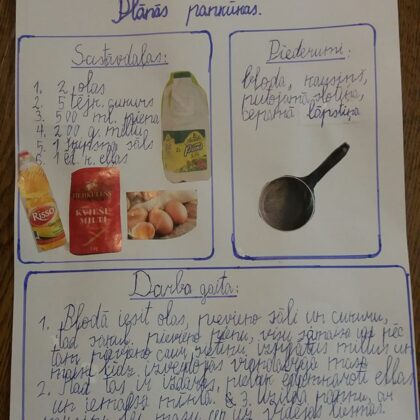 Plānās pankūkas.
Sastāvdaļas:
1. 2 olas
2. 5 tējk. cukurs
3. 500 ml. piena
4. 200 g. miltu
5. 1 šķipsna sāls
6. 1 ēd. k. eļļas
RISSO
HERKULESS
KVIEŠU
MILTI
Piederumi:
bļoda, kausiņš,
putojamā slotiņa,
cepamā lāpstiņa
Darba gaita:
1. Bļodā iesit olas, pievieno sāli un cukuru,
tad pievieno pienu, visu samaisa un pēc
tam pievieno miltus un
maisa līdz izveidojas viendabīga masa
2. Kad tas ir izdarīts, pielej eļļu
un iemaisa mīklā. 3. Uzsilda pannu, un
masu un uz vidējas liesmas